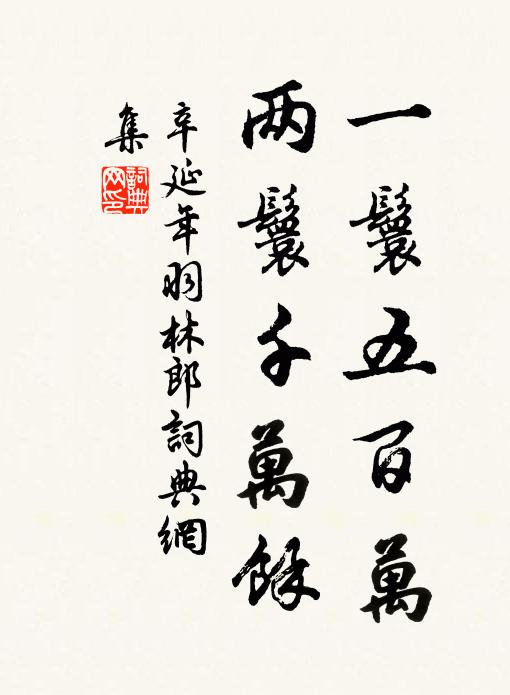 一鬟五百萬
兩鬟千萬餘
辛延年羽林郎詞典網
集
詞典网印